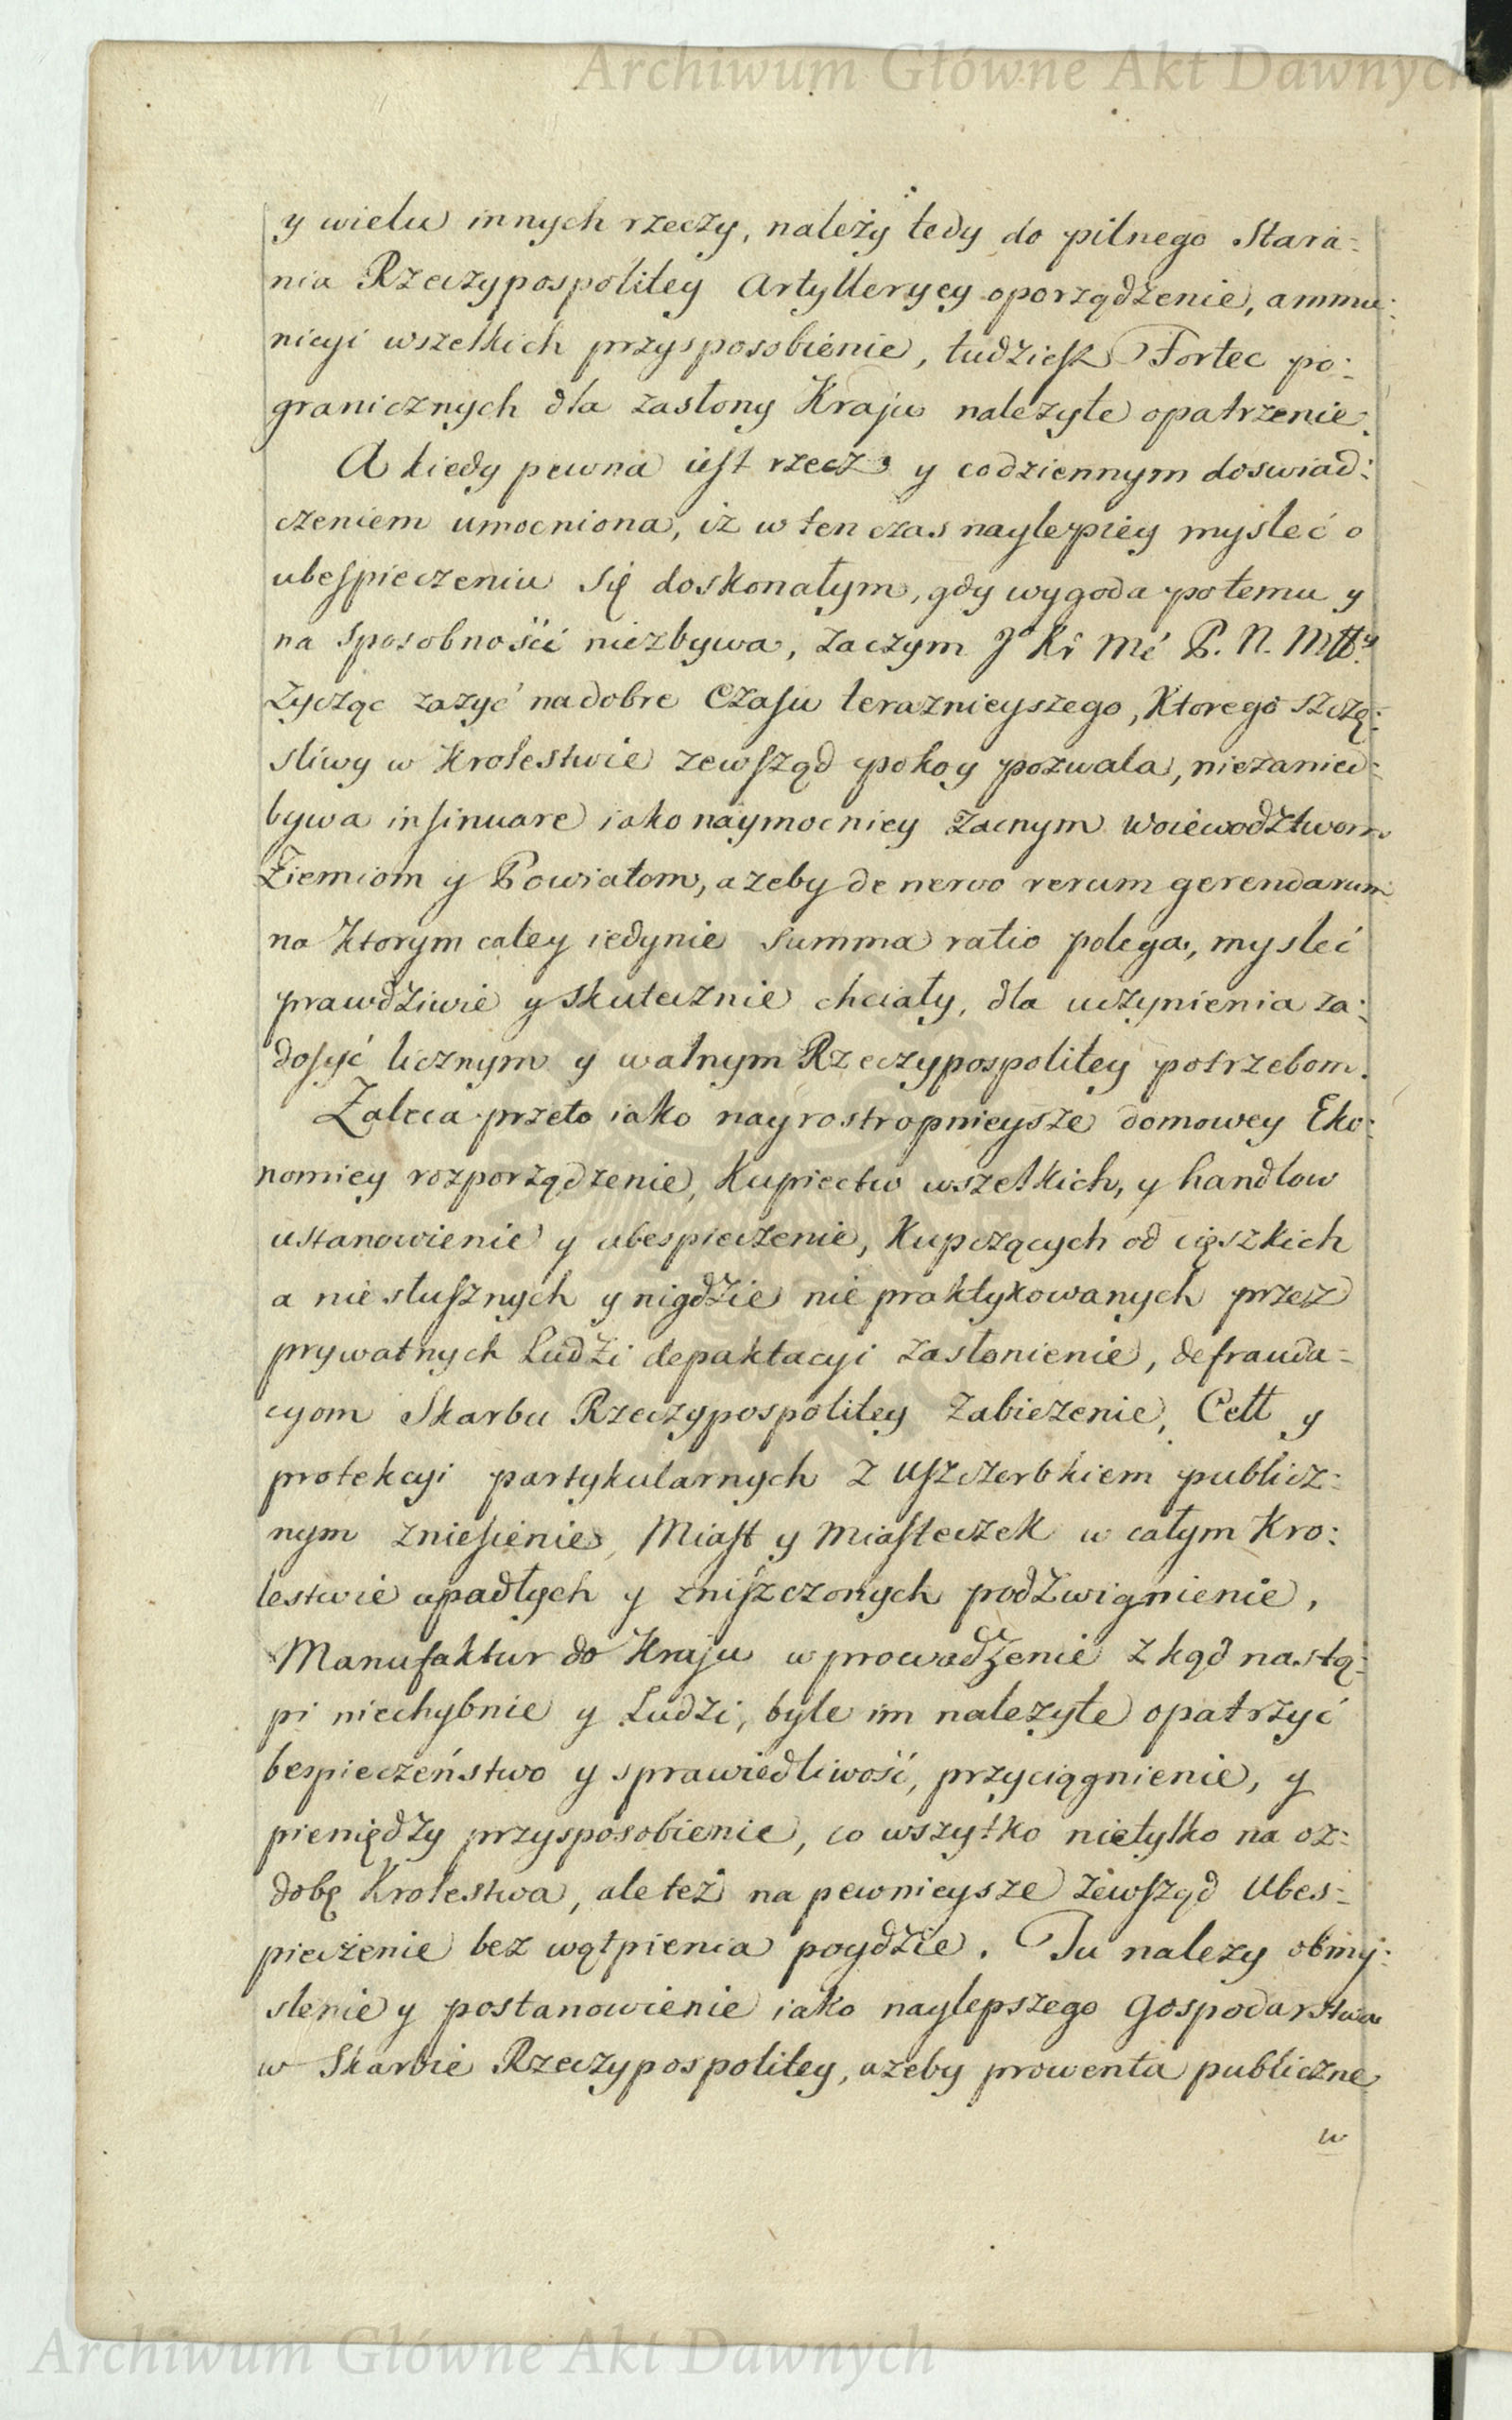 Archiwum Główne Akt Dawnych
y wielu innych rzeczy, należy tedy do pilnego Stara:
nia Rzeczypospolitey Artylleryey oporządzenie, ammu:
nicyi wszelkich przysposobienie, tudzieſz Fortec po:
granicznych dla zasłony Kraju należyte opatrzenie.
A kiedy pewna ieſt rzecz y codziennym doswiad:
czeniem umocniona, iż w ten czas naylepiey myśleć o
ubeſpieczeniu Się doskonałym, gdy wygoda potemu y
na Sposobnośći niezbywa, zaczym J Kr Mć P. N. Młł
Zycząc zazyć na dobre Czaſu teraznieyszego, Ktorego szczę:
śliwy w Krolestwie zewſząd pokoy pozwala, niezanied:
bywa inſinuare iako naymocniey Zacnym Woiewodztwom
Ziemiom y Powiatom, azeby de nervo rerum gerendarum
na Ktorym całey iedynie Summa ratio polega, mysleć
prawdziwie y skutecznie chciały, dla uczynienia za:
doſyć licznym y walnym Rzeczypospolitey potrzebom.
Zaleca przeto iako nayrostropnieysze domowey Eko:
nomiey rozporządzenie, Kupiectw wszelkich, y handlow
ustanowienie y ubespieczenie, Kupczących od cięszkich
a nie słuſznych y nigdzie nie praktykowanych przez
prywatnych Ludzi depaktacyi zasłonienie, defrauda=
cyom Skarbu Rzeczypospolitey Zabiezenie, Cełł y
protekcyi partykularnych z Uſzczerbkiem publicz:
nym znieſienie, Miaſt y Miaſteczek w całym Kro:
lestwie upadłych y zniſzczonych podzwignienie,
Manufaktur do Kraju wprowadzenie zkąd nastą:
pi niechybnie y Ludzi, byle im należyte opatrzyć
bespieczeństwo y sprawiedliwość, przyciągnienie, y
pieniędzy przysposobienie, co wszytko nietylko na oz:
dobę Krolestwa, ale też na pewnieysze zewſząd Ubes:
pieczenie bez wątpienia poydzie. Tu nalezy obmy:
slenie y postanowienie iako naylepszego Gospodarstwa
w Skarbie Rzeczypospolitey, azeby prowenta publiczne
w
Archiwum Główne Akt Dawnych